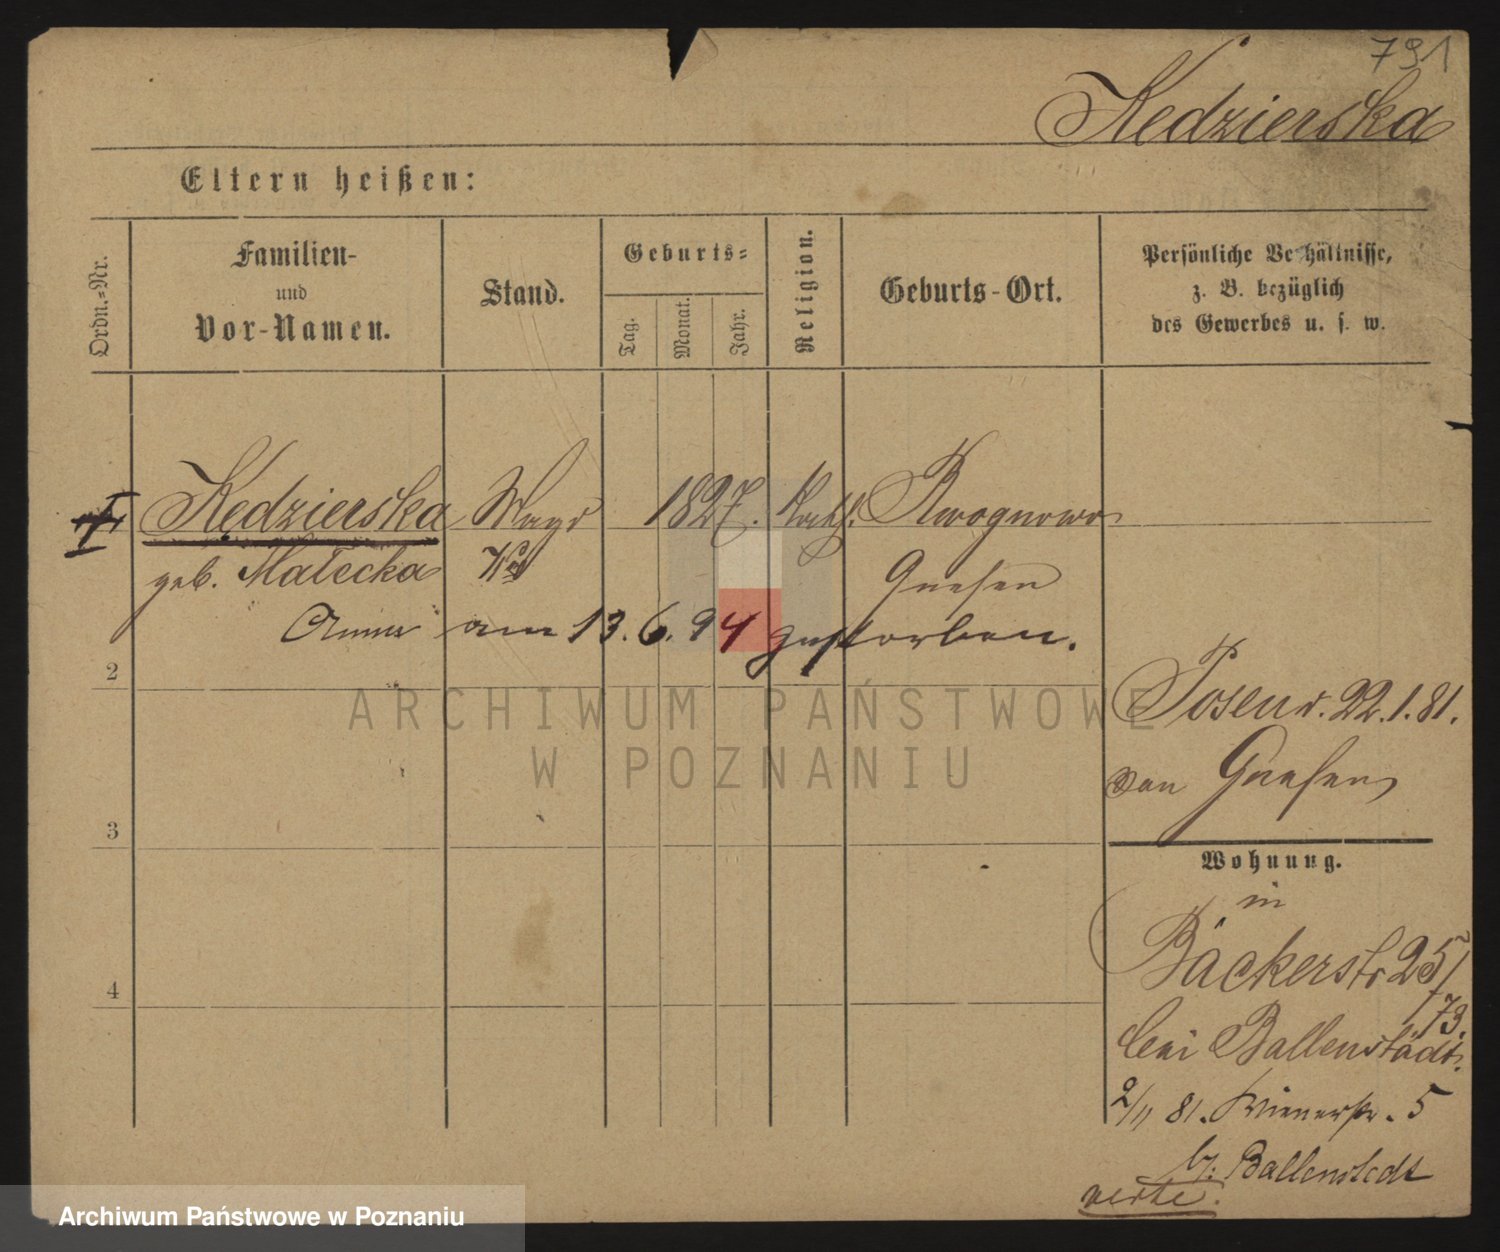 791
Kedzierska
Eltern heißen:
Ordn.=Nr.
Familien-
und
Vor-Namen.
Stand.
Geburts=
Tag.
Monat.
Jahr.
Religion.
Geburts-Ort.
Persönliche Verhältnisse,
z. B. bezüglich
des Gewerbes u. s. w.
Kędzierska
1827. Kath.
geb. Małecka
Gnesen
Anna am 13.6.94 gestorben.
2
Posen d. 22.1.81.
von Gnesen
3
Wohnung.
in
Bäckerstr 25/
73.
bei Ballenstädt.
4
2/11 81. Wienerstr. 5
b/. Ballenstedt
verte.
ARCHIWUM PAŃSTWOWE
W POZNANIU
Archiwum Państwowe w Poznaniu